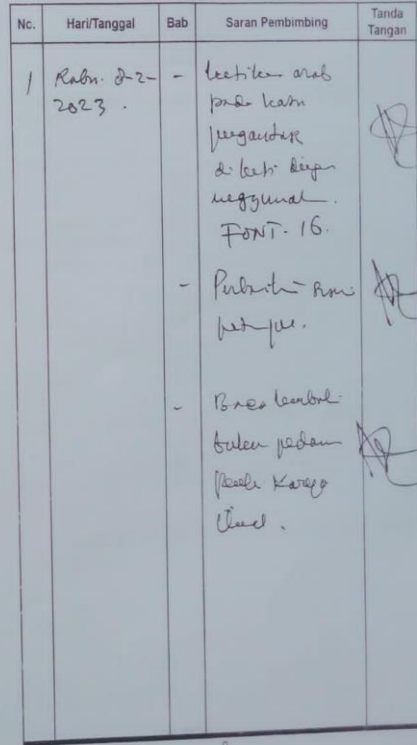 No. Hari/Tanggal Bab Saran Pembimbing Tanda Tangan
1 Rabu. 8-2- - ketikan arab
2023. pada kata
pengantar
di ketik dengan
menggunak.
FONT. 16.
- Perbaiki
- Baca kembali
buku pedom
Karya